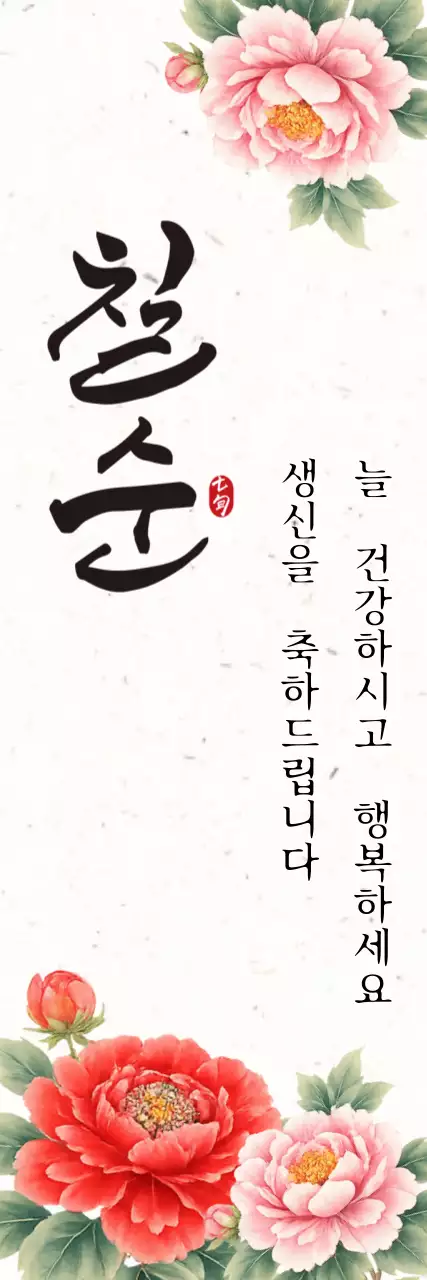 칠순
七旬
늘 건강하시고 행복하세요
생신을 축하드립니다